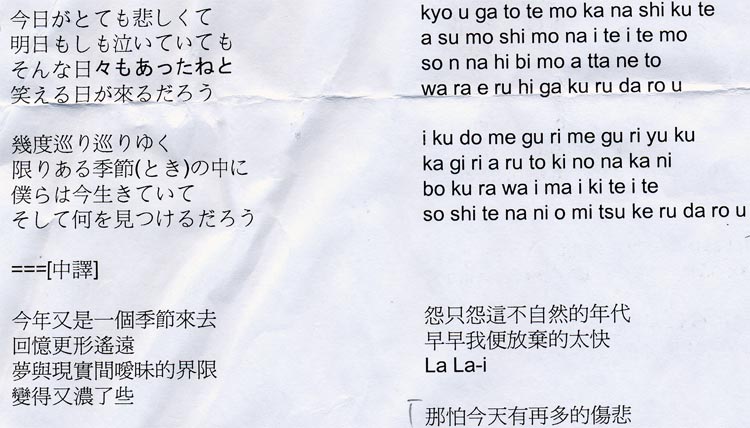 今日がとても悲しくて
明日もしも泣いていても
そんな日々もあったねと
笑える日が來るだろう
幾度巡り巡りゆく
限りある季節(とき)の中に
僕らは今生きていて
そして何を見つけるだろう
===[中譯]
今年又是一個季節來去
回憶更形遙遠
夢與現實間曖昧的界限
變得又濃了些
kyo u ga to te mo ka na shi ku te
a su mo shi mo na i te i te mo
so n na hi bi mo a tta ne to
wa ra e ru hi ga ku ru da ro u
i ku do me gu ri me gu ri yu ku
ka gi ri a ru to ki no na ka ni
bo ku ra wa i ma i ki te i te
so shi te na ni o mi tsu ke ru da ro u
怨只怨這不自然的年代
早早我便放棄的太快
La La-i
那怕今天有再多的傷悲